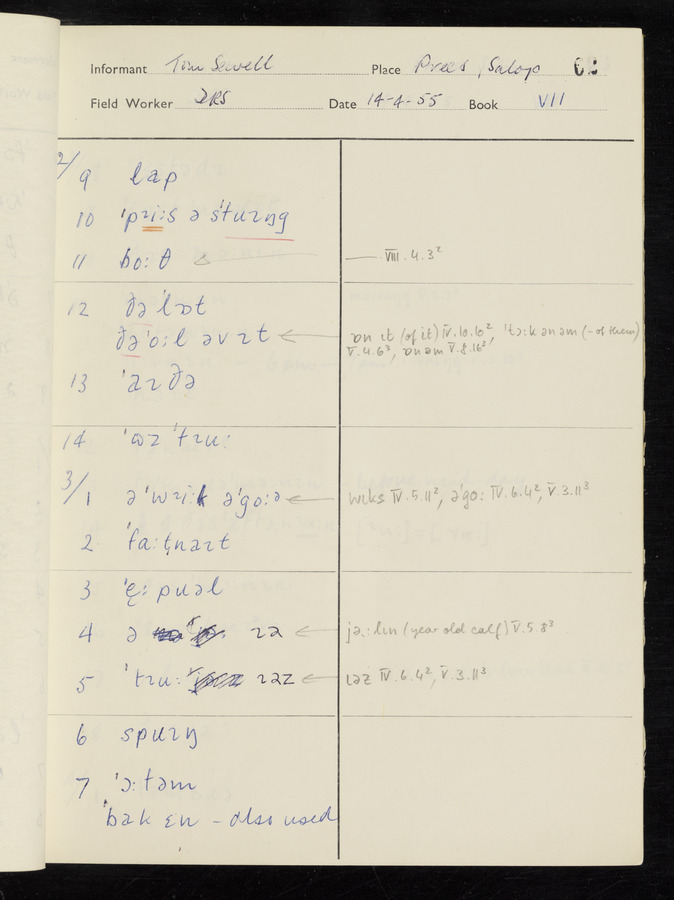 Informant Tom Sewell Place Prees, Salop
Field Worker DRS Date 14-4-55 Book VII
2/ 9 lap
10 ˈpɹiːs ə ˈstuɪŋg
11 boːθ VIII.4.3²
12 ðə ˈlɒt
ðə ˈoːl əv ɪt ɒn ɪt (of it) IV.10.10², ˈtəːk ən əm (- of them)
V.4.6³, ɒn əm V.8.16³
13 ˈaɪðə
14 ˈɒz ˈtɹuː
3/ 1 ə ˈwiːk əˈgoːə wɪks IV.5.11², əˈgoː IV.6.4², V.3.11³
2 ˈfaːtnaɪt
3 ˈɛːpuəl
4 ə ɪə jəːlɪn (year old calf) V.5.8³
5 ˈtɹuː ɪəz ɪəz IV.6.4², V.3.11³
6 spuɪŋ
7 ˈɔːtəm
ˈbak ɛn – also used